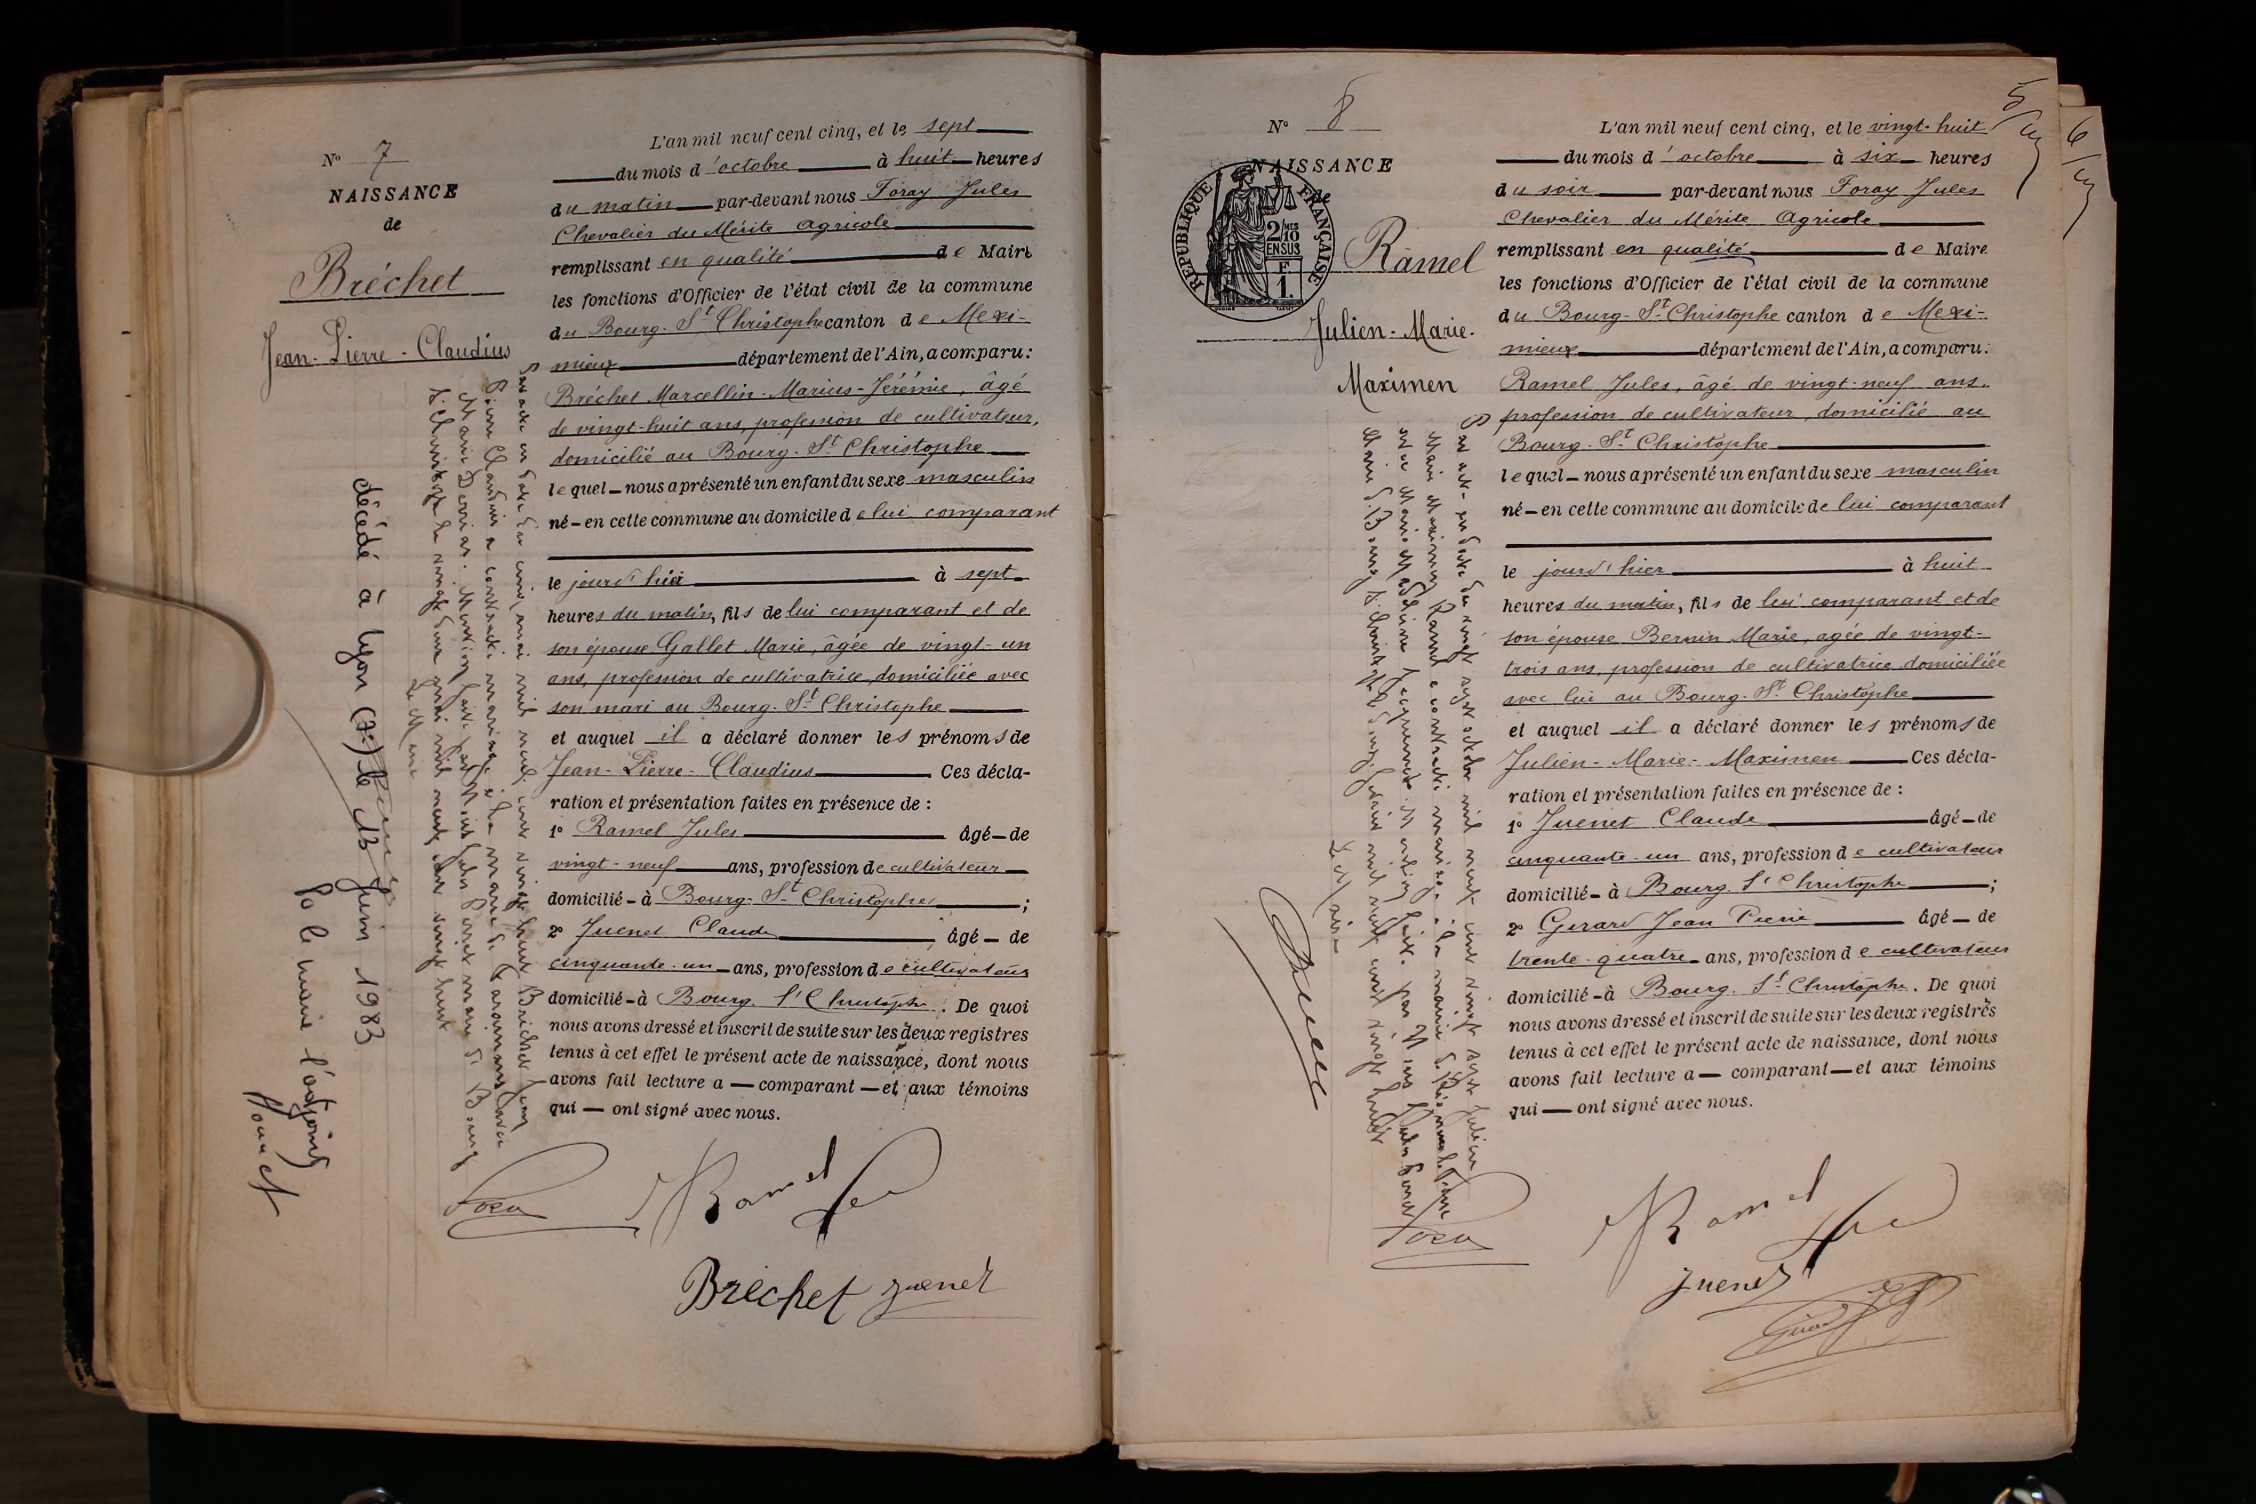 Nº 7
NAISSANCE
de
Bréchet
Jean-Pierre-Claudius
L'an mil neuf cent cinq, et le sept
du mois d'octobre à huit heures
du matin par-devant nous Foray Jules
Chevalier du Mérite Agricole
remplissant en qualité de Maire
les fonctions d'Officier de l'état civil de la commune
du Bourg-St-Christophe canton de Mexi-
mieux département de l'Ain, a comparu:
Bréchet Marcellin-Marius-Jérémie, âgé
de vingt-huit ans, profession de cultivateur,
domicilié au Bourg-St Christophe
lequel nous a présenté un enfant du sexe masculin
né en cette commune au domicile de lui comparant
le jourd'hier à sept
heures du matin, fils de lui comparant et de
son épouse Gallet Marie, âgée de vingt-un
ans, profession de cultivatrice, domiciliée avec
son mari au Bourg-St Christophe
et auquel il a déclaré donner les prénoms de
Jean-Pierre-Claudius Ces décla-
ration et présentation faites en présence de :
1º Ramel Jules âgé de
vingt-neuf ans, profession de cultivateur
domicilié à Bourg-St Christophe ;
2º Juenet Claude âgé de
cinquante-un ans, profession de cultivateur
domicilié à Bourg St Christophe. De quoi
nous avons dressé et inscrit de suite sur les deux registres
tenus à cet effet le présent acte de naissance, dont nous
avons fait lecture a comparant et aux témoins
qui ont signé avec nous.
Foray Ramel
Bréchet Juenet
Jean
Pierre Claudius a contracté mariage à la mairie de avec
Marie par Me Jules Foray maire de Bourg
St Christophe le vingt mai mil neuf cent vingt huit
Le Maire
décédé à Lyon (7e) le 13 juin 1983
Po le maire l'adjoint
Nº 8
NAISSANCE
de
RÉPUBLIQUE FRANÇAISE
2/10 MES
EN SUS
F.
1.
Ramel
Julien-Marie-
Maximen
L'an mil neuf cent cinq, et le vingt-huit
du mois d'octobre à six heures
du soir par-devant nous Foray Jules
Chevalier du Mérite Agricole
remplissant en qualité de Maire
les fonctions d'Officier de l'état civil de la commune
du Bourg-St-Christophe canton de Mexi-
mieux département de l'Ain, a comparu:
Ramel Jules, âgé de vingt-neuf ans,
profession de cultivateur, domicilié au
Bourg-St Christophe
lequel nous a présenté un enfant du sexe masculin
né en cette commune au domicile de lui comparant
le jourd'hier à huit
heures du matin, fils de lui comparant et de
son épouse Bernin Marie, âgée de vingt-
trois ans, profession de cultivatrice domiciliée
avec lui au Bourg-St Christophe
et auquel il a déclaré donner les prénoms de
Julien-Marie-Maximen Ces décla-
ration et présentation faites en présence de :
1º Juenet Claude âgé de
cinquante-un ans, profession de cultivateur
domicilié à Bourg St Christophe ;
2º Girard Jean Pierre âgé de
trente-quatre ans, profession de cultivateur
domicilié à Bourg-St-Christophe. De quoi
nous avons dressé et inscrit de suite sur les deux registres
tenus à cet effet le présent acte de naissance, dont nous
avons fait lecture a comparant et aux témoins
qui ont signé avec nous.
Foray Ramel
Juenet
Girard
du vingt sept octobre mil neuf cent vingt sept Julien
Marie Maximen Ramel a contracté mariage à la mairie de
Marie par Me Jules Foray
Maire de Bourg St Christophe mil neuf cent vingt huit
Le Maire
5
6